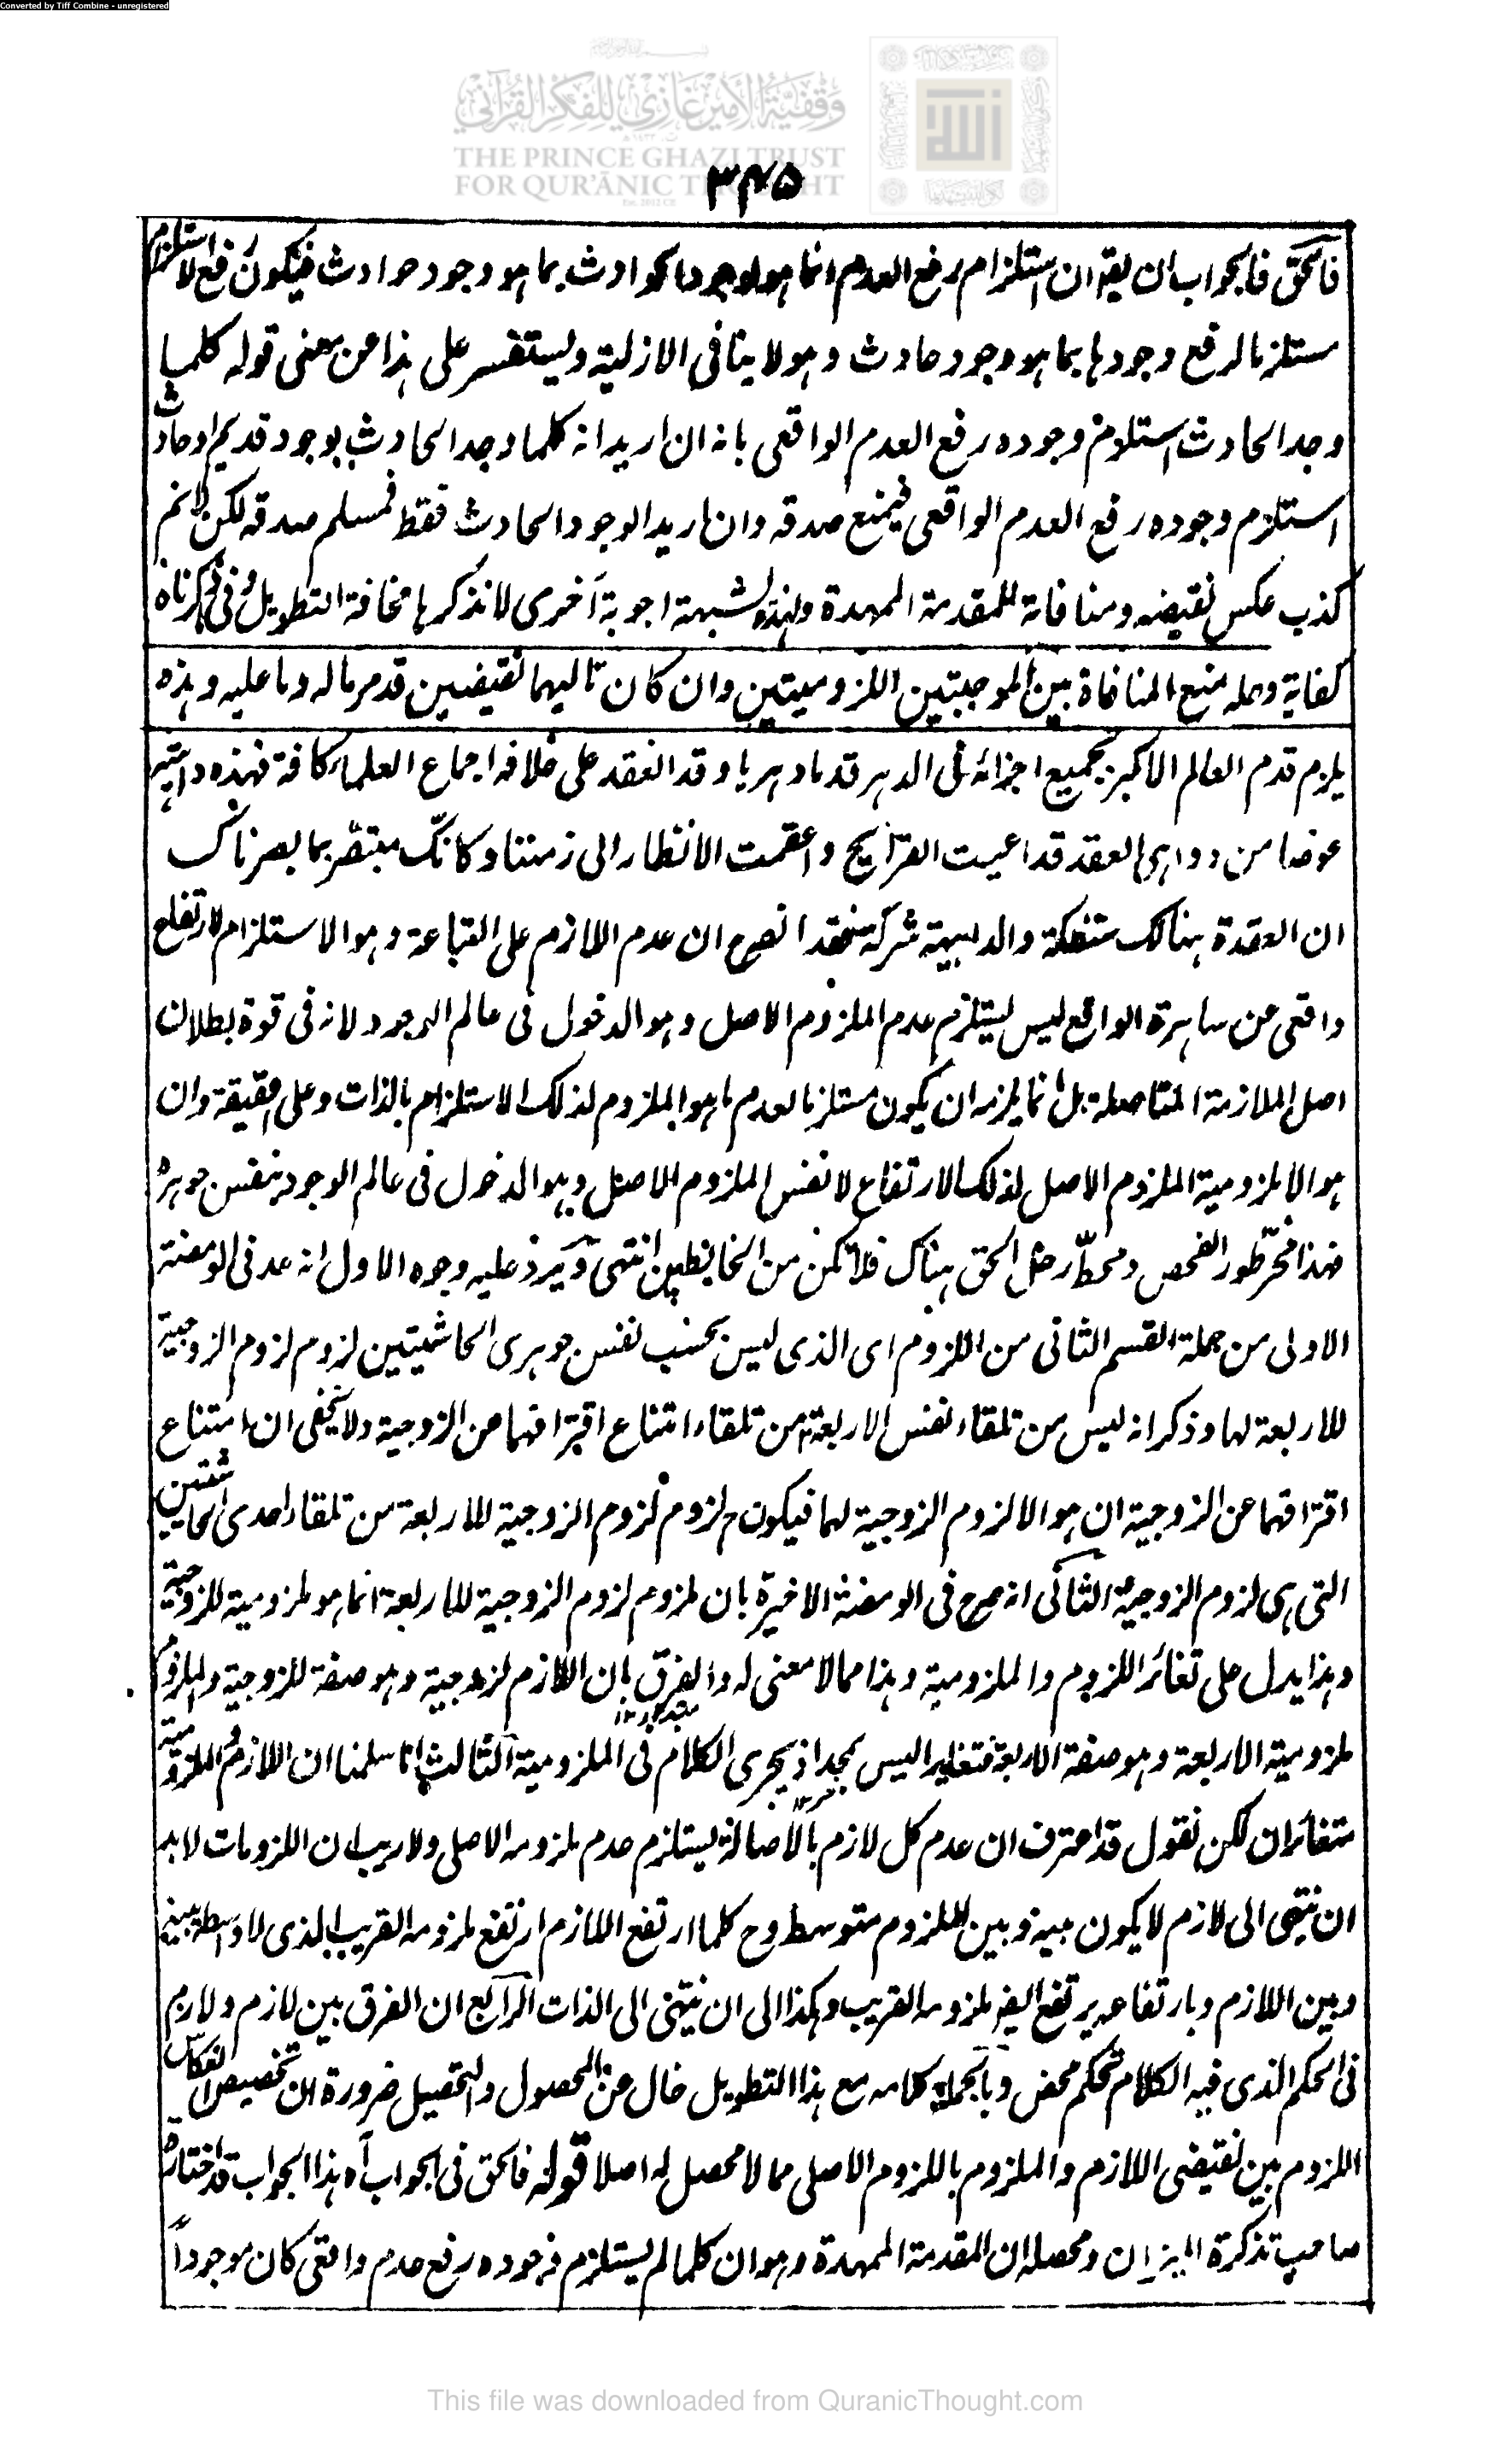 Converted by Tiff Combine - unregistered
وقفية الأمير غازي للفكر القرآني
THE PRINCE GHAZI TRUST
FOR QUR'ĀNIC THOUGHT
٣٤٥
فالحق فالجواب ان يقو ان استلزام رفع العدم انما هو لوجود الحوادث بما هو وجود حوادث فيكون رفع الاستلزام
مستلزما لرفع وجودها بما هو وجود حادث وهو لا ينافى الازلية وليستفسر على هذا عن معنى قوله كلما
وجد الحادث استلزم وجوده رفع العدم الواقعى بانه ان اريد انه كلما وجد الحادث بوجود قديم او حادث
استلزم وجوده رفع العدم الواقعى فيمنع صدقه وان اريد الوجود الحادث فقط فمسلم صدقه لكن لانم
كذب عكس نقيضه ومنافاته للمقدمة الممهدة ولهذه الشبهة اجوبة اخرى لا نذكرها مخافة التطويل وفى ما ذكرناه
كفاية وحله منع المنافاة بين الموجبتين اللزوميتين وان كان تاليهما نقيضين قد مر ماله وما عليه وهذه
يلزم قدم العالم الاكبر بجميع اجزائه فى الدهر قدما دهريا وقد انعقد على خلافه اجماع العلماء كافة فهذه داهية
عوضا من دواهى العقد قد اعيت القرائح واعقمت الانظار الى زمننا وكانك متبصر بما بصرناك
ان العقدة هنالك منفكة والداهية شركة منجذ انصرح ان عدم اللازم على التباعة وهو الاستلزام لارتفاع
واقعى عن ساهرة الواقع ليس يستلزم عدم الملزوم الاصل وهو الدخول فى عالم الوجود لانه فى قوة بطلان
اصل الملازمة المتاصلة بل انما يلزمه ان يكون مستلزما لعدم ما هو الملزوم لذلك الاستلزام بالذات وعلى الحقيقة وان
هو الا ملزومية الملزوم الاصل لذلك الارتفاع لا نفس الملزوم الاصل وهو الدخول فى عالم الوجود بنفس جوهره
فهذا مخر طور الفحص ومحط رحل الحق هناك فلا تكن من الخابطين انتهى ويرد عليه وجوه الاول انه عد فى الومضة
الاولى من جملة القسم الثانى من اللزوم اى الذى ليس بحسب نفس جوهرى الحاشيتين لزوم لزوم الزوجية
للاربعة لها وذكر انه ليس من تلقاء نفس الاربعة بل من تلقاء امتناع افتراقها عن الزوجية ولا يخفى ان امتناع
افتراقها عن الزوجية ان هو الا لزوم الزوجية لها فيكون ح لزوم لزوم الزوجية للاربعة من تلقاء احدى الحاشيتين
التى هى لزوم الزوجية الثانى انه صرح فى الومضة الاخيرة بان ملزوم لزوم الزوجية للاربعة انما هو ملزومية للزوجية
وهذا يدل على تغائر اللزوم والملزومية وهذا مما لا معنى له والفرق بان اللازم لزوجية وهو صفة للزوجية والملزوم
ملزومية الاربعة وهو صفة الاربعة فتغايرا ليس بمجد اذ يجرى الكلام فى الملزومية الثالث انا سلمنا ان اللازم والملزومية
متغائران لكن نقول قد اعترف ان عدم كل لازم بالاصالة يستلزم عدم ملزومه الاصلى ولا ريب ان اللزومات لا بد
ان ينتهى الى لازم لا يكون بينه وبين الملزوم متوسط وح كلما ارتفع اللازم ارتفع ملزومه القريب الذى لا واسطة بينه
وبين اللازم وبارتفاعه يرتفع ايضا ملزومه القريب وهكذا الى ان ينتهى الى الذات الرابع ان الفرق بين لازم ولازم
فى الحكم الذى فيه الكلام تحكم محض وبالجملة كلامه مع هذا التطويل خال عن المحصول والتحصيل ضرورة ان تخصيص انعكاس
اللزوم بين نقيضى اللازم والملزوم باللزوم الاصلى مما لا محصل له اصلا قوله فالحق فى الجواب آه هذا الجواب قد اختاره
صاحب تذكرة الميزان ومحصله ان المقدمة الممهدة وهو ان كلما لم يستلزم وجوده رفع عدم واقعى كان موجوداً
This file was downloaded from QuranicThought.com